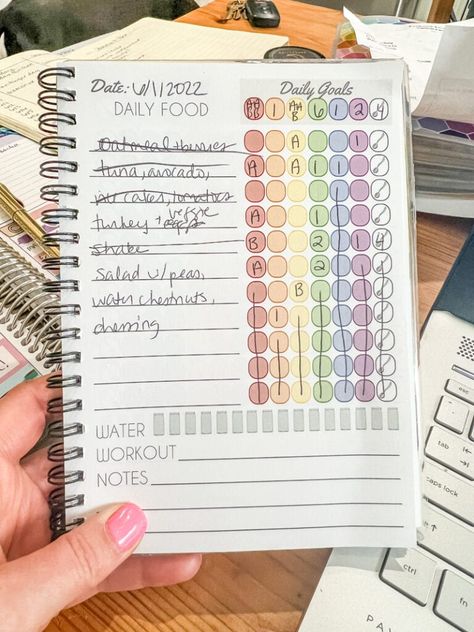 Date: 6/1/2022
Daily Goals
DAILY FOOD
AA BB 1 AA B 6 1 2 4
oatmeal + berries A 1
tuna, avocado, A A 1 1
rice cakes, tomatoes
turkey + veggie A 1
shake B 2 1 4
salad w/ peas, A 2
water chestnuts, B
dressing 1
WATER
WORKOUT
NOTES
caps lock
shift
ctrl
fn